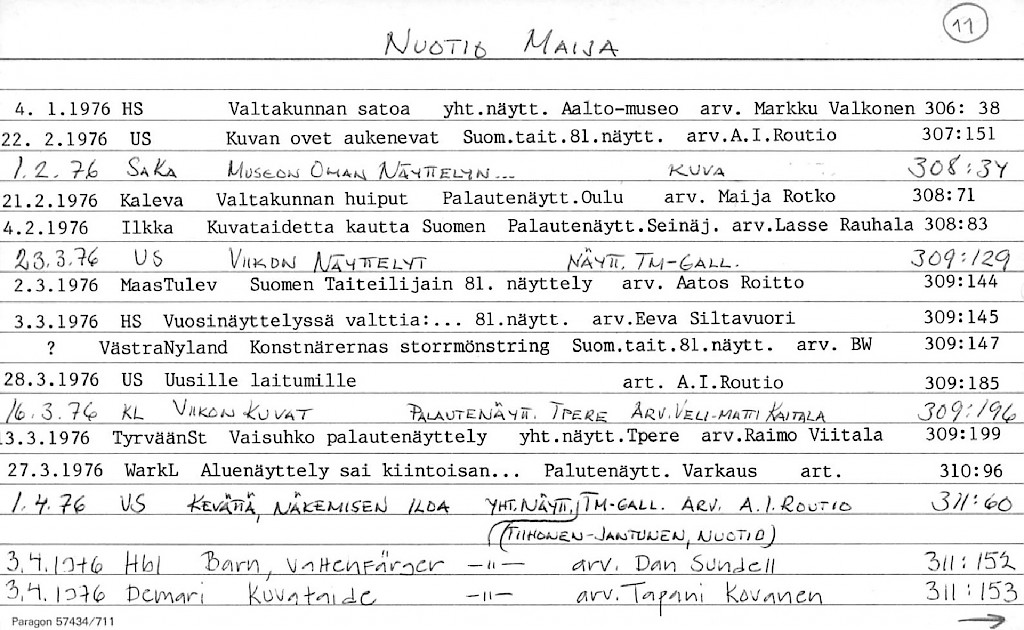 11
NUOTIO MAIJA
4. 1.1976 HS Valtakunnan satoa yht.näytt. Aalto-museo arv. Markku Valkonen 306: 38
22. 2.1976 US Kuvan ovet aukenevat Suom.tait.81.näytt. arv.A.I.Routio 307:151
1.2.76 SaKa MUSEON OMAN NÄYTTELYN... KUVA 308:34
21.2.1976 Kaleva Valtakunnan huiput Palautenäytt.Oulu arv. Maija Rotko 308:71
4.2.1976 Ilkka Kuvataidetta kautta Suomen Palautenäytt.Seinäj. arv.Lasse Rauhala 308:83
23.3.76 US VIIKON NÄYTTELYT NÄYTT. TM-GALL. 309:129
2.3.1976 MaasTulev Suomen Taiteilijain 81. näyttely arv. Aatos Roitto 309:144
3.3.1976 HS Vuosinäyttelyssä valttia:... 81.näytt. arv.Eeva Siltavuori 309:145
? VästraNyland Konstnärernas storrmönstring Suom.tait.81.näytt. arv. BW 309:147
28.3.1976 US Uusille laitumille art. A.I.Routio 309:185
16.3.76 KL VIIKON KUVAT PALAUTENÄYTT. TPERE ARV.VELI-MATTI KAITALA 309:196
13.3.1976 TyrväänSt Vaisuhko palautenäyttely yht.näytt.Tpere arv.Raimo Viitala 309:199
27.3.1976 WarkL Aluenäyttely sai kiintoisan... Palutenäytt. Varkaus art. 310:96
1.4.76 US KEVÄTTÄ, NÄKEMISEN ILOA YHT.NÄYTT./TM-GALL. ARV. A.I.ROUTIO 311:60
(TIIHONEN-JANTUNEN, NUOTIO)
3.4.1976 Hbl Barn, vattenfärger -"- arv. Dan Sundell 311:152
3.4.1976 Demari Kuvataide -"- arv. Tapani Kovanen 311:153
→
Paragon 57434/711